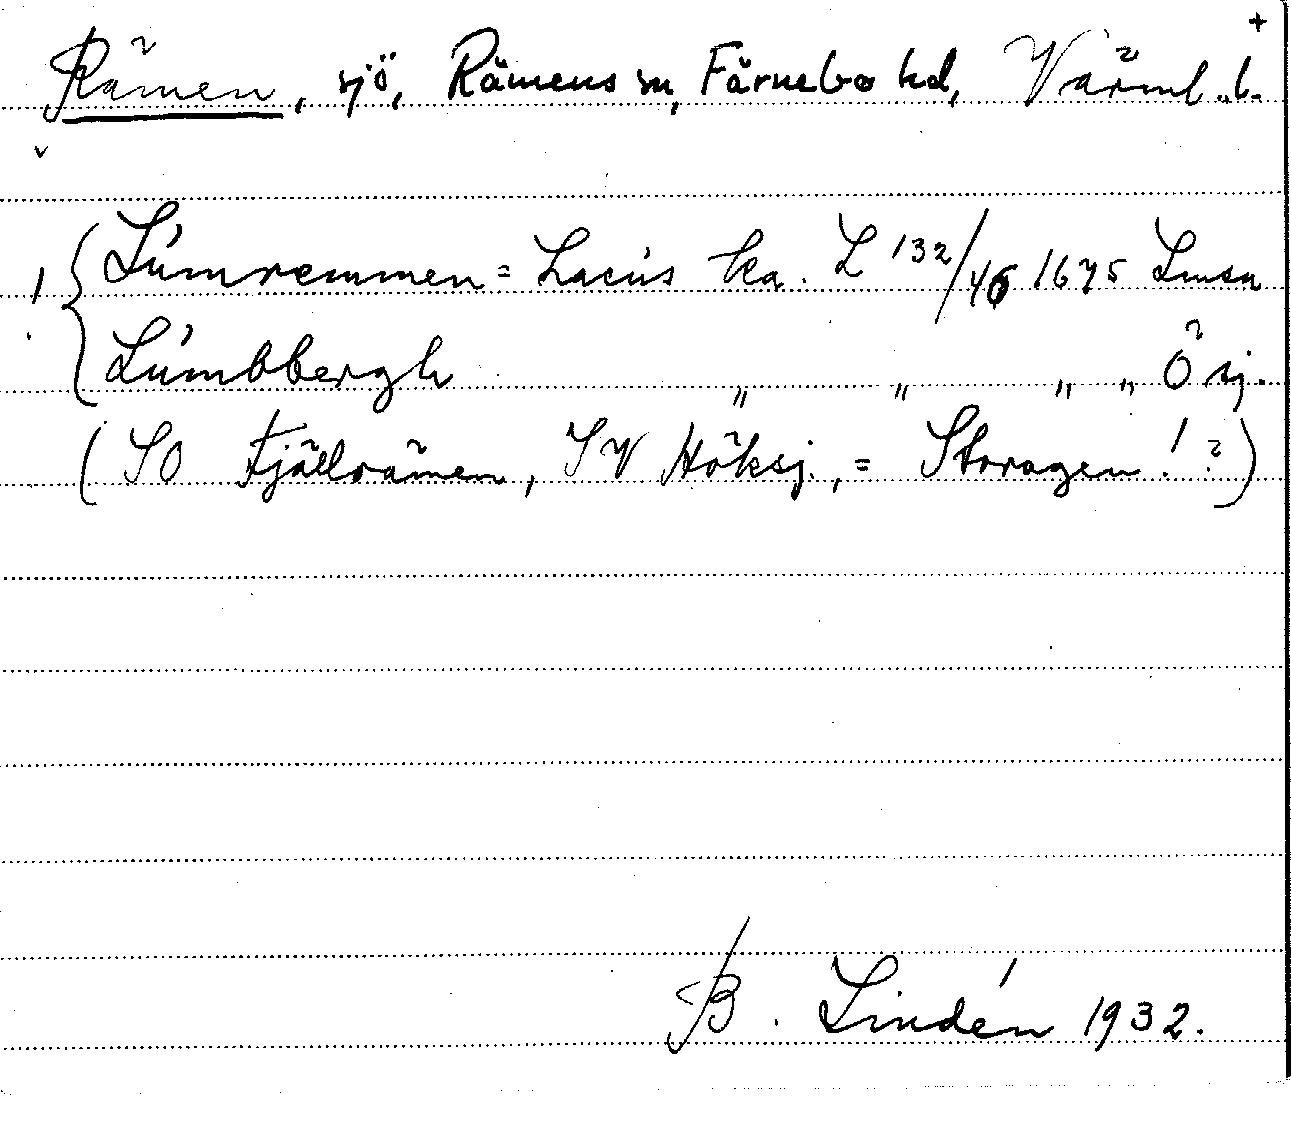 +
Rämen, sjö, Rämens sn, Färnebo hd, Värml. l.
v
1 { Lumremmen = Lacus ka. L 132/46 1675 Lmsa
Lumbbergh " " " " Ö sj.
(SO Fjällrämen, SV Höksj., = Storagen! ?)
B. Lindén 1932.